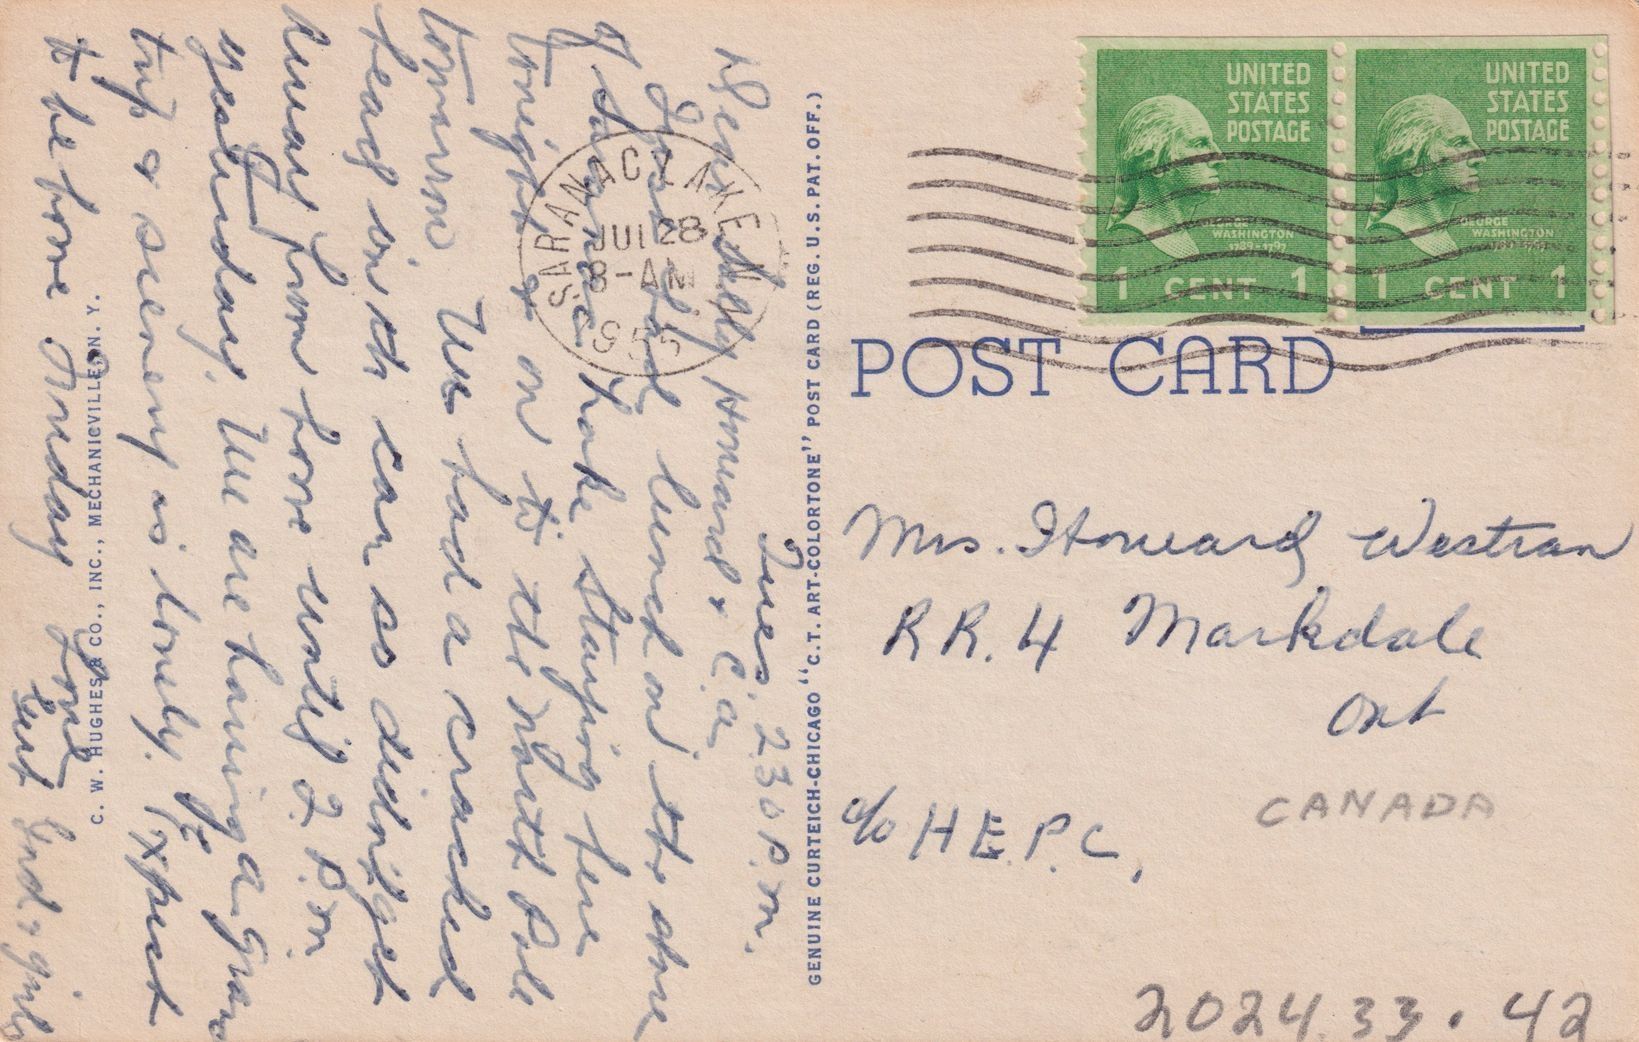 Tues, 2.30 P.M.
Dear Nelly Howard & C.a.
Just had lunch on the shore
of Saranac Lake Staying here
tonight & on to the North Pole
tomorrow We had a cracked
head in the car so didn't get
away from home until 2 P.M
yesterday. We are having a grand
trip & scenery is lovely. Expect
to be home Friday Love
Gert Ind & girls
SARANAC LAKE N
JUL 28
8-AM
1955
C. W. HUGHES & CO., INC., MECHANICVILLE, N. Y.
GENUINE CURTEICH-CHICAGO "C.T. ART-COLORTONE" POST CARD (REG. U.S. PAT. OFF.)
UNITED STATES POSTAGE
GEORGE WASHINGTON
1789-1797
1 CENT 1
UNITED STATES POSTAGE
GEORGE WASHINGTON
1 CENT 1
POST CARD
Mrs. Howard Westran
R R. 4 Markdale
Ont
CANADA
c/o H.E.P.C,
2024.33.42